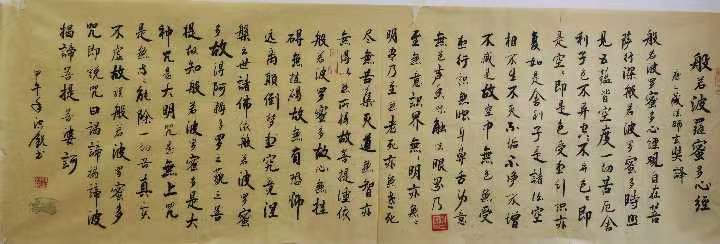 般若波羅蜜多心經
唐三藏法師玄奘譯
般若波罗蜜多心經觀自在菩
萨行深般若波罗蜜多時照
見五蕴皆空度一切苦厄舍
利子色不异空々不异色々即
是空々即是色受想行識亦
复如是舍利子是諸法空
相不生不灭不垢不净不增
不减是故空中無色無受
想行識無眼耳鼻舌身意
無色声香味觸法無眼界乃
至無意識界無無明亦無無
明尽乃至無老死亦無老死
尽無苦集灭道無智亦
無得以無所得故菩提薩依
般若波罗蜜多故心無挂
碍無挂碍故無有恐怖
远离顛倒梦想究竟涅
槃三世諸佛依般若波罗蜜
多故得阿耨多罗三藐三菩
提故知般若波罗蜜多是大
神咒是大明咒是無上咒
是無等能除一切苦真实
不虚故說般若波罗蜜多
咒即說咒曰揭諦揭諦波
揭諦菩提薩婆訶
甲午年